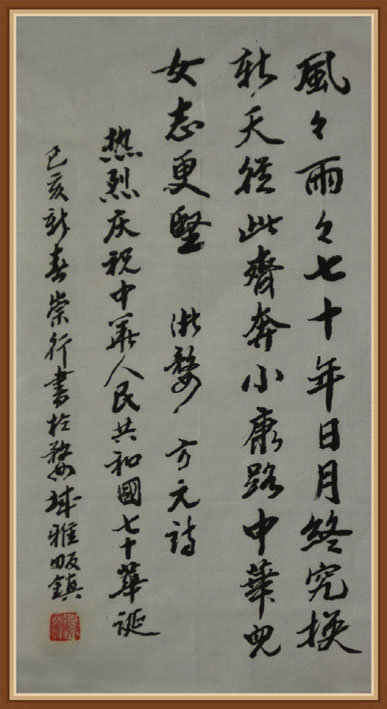 風々雨々七十年日月終究換
新天從此齊奔小康路中華兒
女志更堅 浙婺方元詩
热烈庆祝中華人民共和國七十華诞
己亥新春崇行書於婺城雅畈鎮